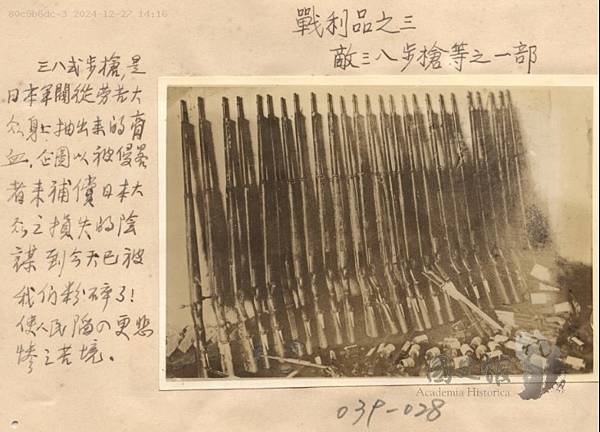 89c9b6dc-3 2024-12-27 14:16
戰利品之三
敵三八步槍等之一部
三八式步槍,是
日本軍閥從勞苦大
众身上抽出來的膏
血,企圖以被侵畧
者來補償日本大
众之損失的陰
謀到今天已被
我们粉碎了!
使人民陷の更悲
慘之苦境。
Academia Historica
039-028